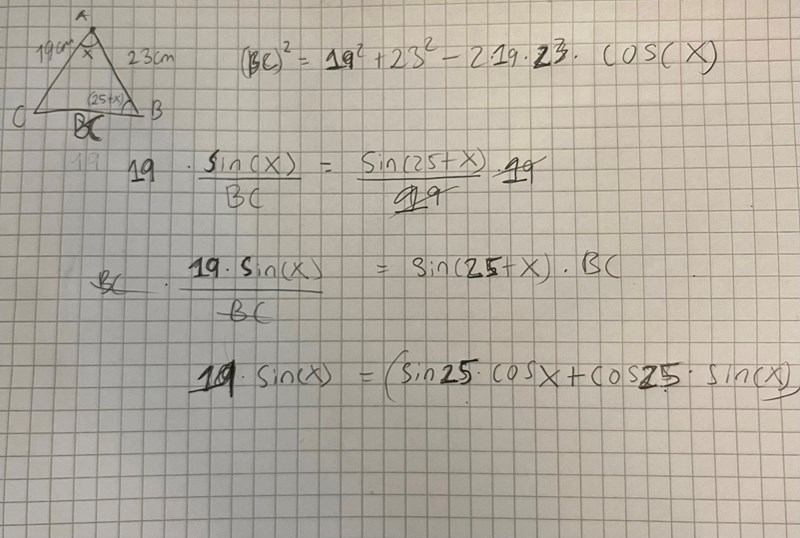 A
19cm x 23cm
(25+x)
C BC B
(BC)² = 19² + 23² - 2·19·23· cos(x)
19 · sin(x)/BC = sin(25+x)/19 · 19
BC · 19·sin(x)/BC = sin(25+x) · BC
19 · sin(x) = (sin25· cosx + cos25· sin(x)